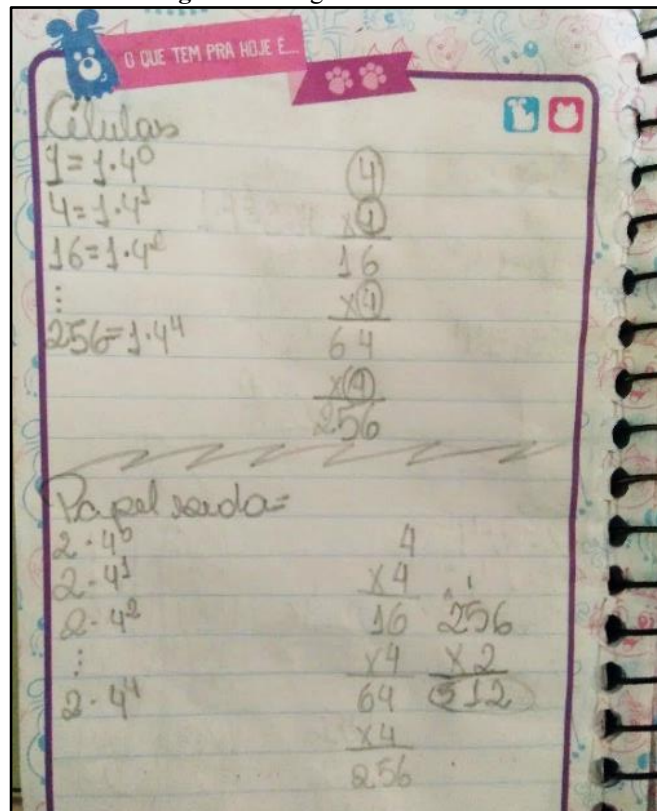 O QUE TEM PRA HOJE É...
Células
1=1·4⁰
4=1·4¹
16=1·4²
⋮
256=1·4⁴
4
x4
16
x4
64
x4
256
Papel seda=
2·4⁰
2·4¹
2·4²
⋮
2·4⁴
4
x4
16
x4
64
x4
256
1
256
x2
512